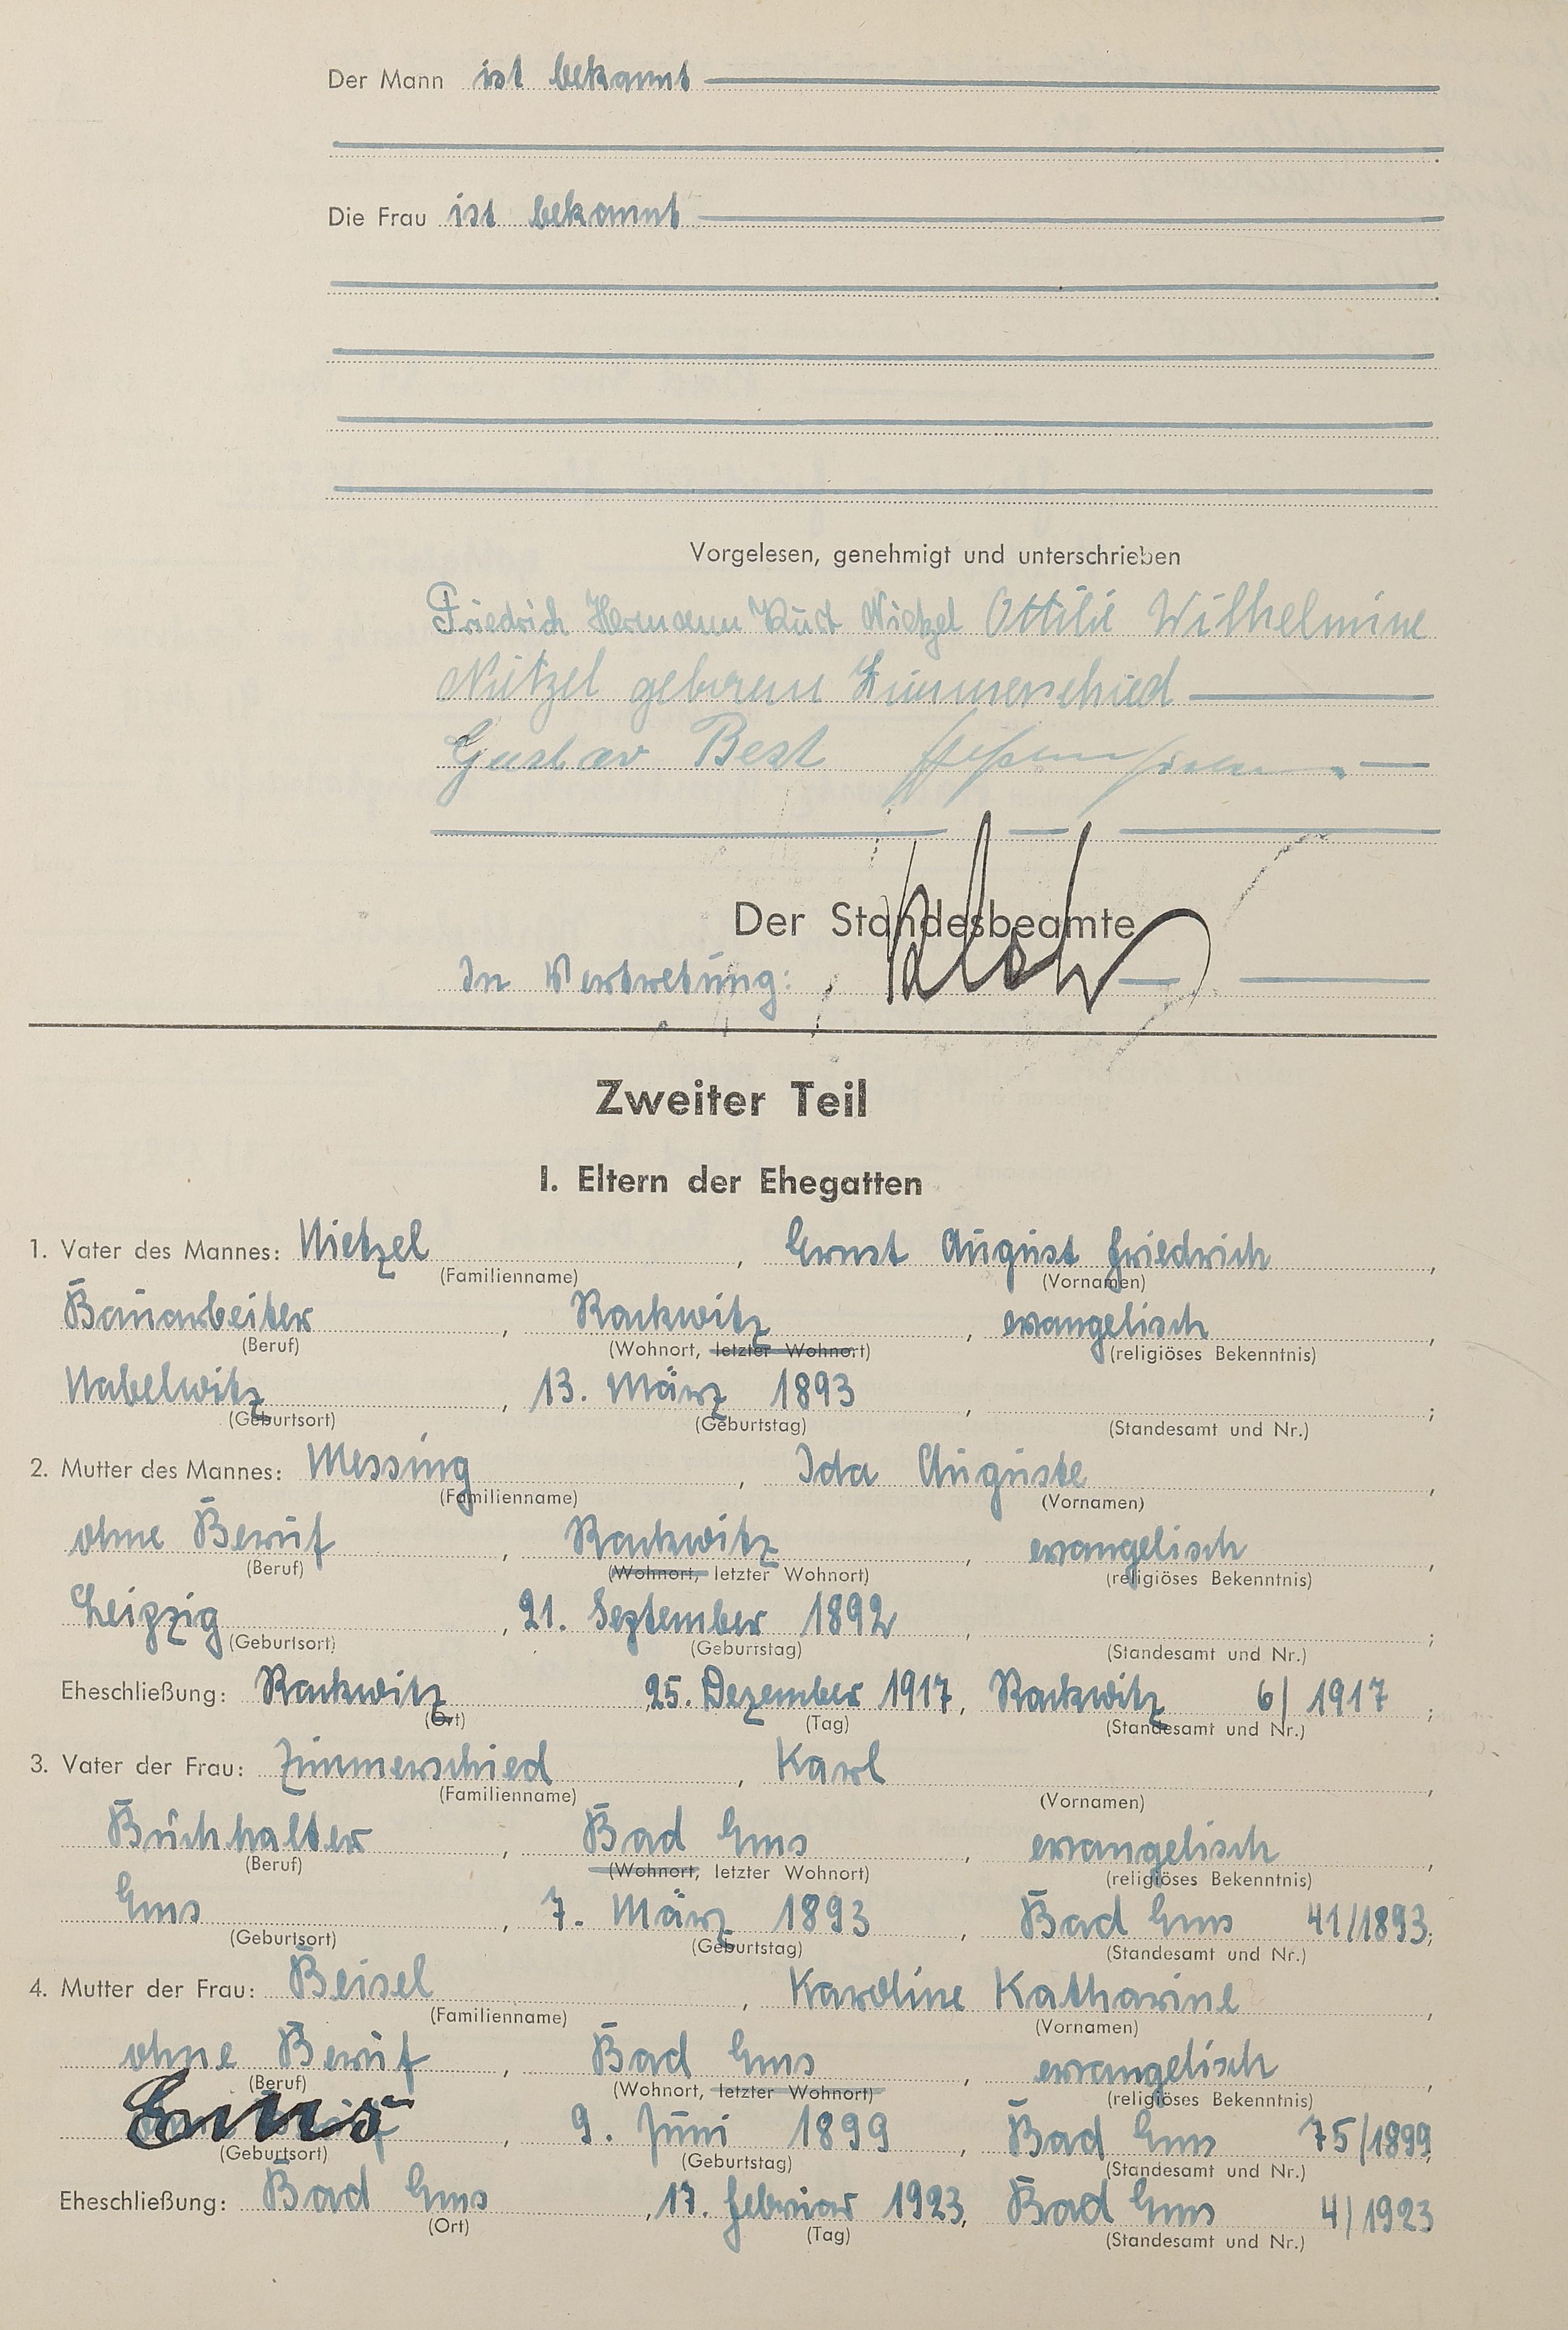 Der Mann ist bekannt
Die Frau ist bekannt
Vorgelesen, genehmigt und unterschrieben
Friedrich Hermann Kurt Nietzel Ottilie Wilhelmine
Nietzel geborene Zimmerschied
Gustav Best
Der Standesbeamte
In Vertretung:
Zweiter Teil
I. Eltern der Ehegatten
1. Vater des Mannes: Nietzel, Ernst August Friedrich,
(Familienname) (Vornamen)
Bauarbeiter, Rackwitz, evangelisch,
(Beruf) (Wohnort, letzter Wohnort) (religiöses Bekenntnis)
Nabelwitz, 13. März 1893, ;
(Geburtsort) (Geburtstag) (Standesamt und Nr.)
2. Mutter des Mannes: Messing, Ida Auguste,
(Familienname) (Vornamen)
ohne Beruf, Rackwitz, evangelisch,
(Beruf) (Wohnort, letzter Wohnort) (religiöses Bekenntnis)
Leipzig, 21. September 1892, ;
(Geburtsort) (Geburtstag) (Standesamt und Nr.)
Eheschließung: Rackwitz, 25. Dezember 1917, Rackwitz 6/1917;
(Ort) (Tag) (Standesamt und Nr.)
3. Vater der Frau: Zimmerschied, Karl,
(Familienname) (Vornamen)
Buchhalter, Bad Ems, evangelisch,
(Beruf) (Wohnort, letzter Wohnort) (religiöses Bekenntnis)
Ems, 7. März 1893, Bad Ems 41/1893;
(Geburtsort) (Geburtstag) (Standesamt und Nr.)
4. Mutter der Frau: Beisel, Karoline Katharine,
(Familienname) (Vornamen)
ohne Beruf, Bad Ems, evangelisch,
(Beruf) (Wohnort, letzter Wohnort) (religiöses Bekenntnis)
Ems, 9. Juni 1899, Bad Ems 75/1899;
(Geburtsort) (Geburtstag) (Standesamt und Nr.)
Eheschließung: Bad Ems, 17. Februar 1923, Bad Ems 4/1923
(Ort) (Tag) (Standesamt und Nr.)